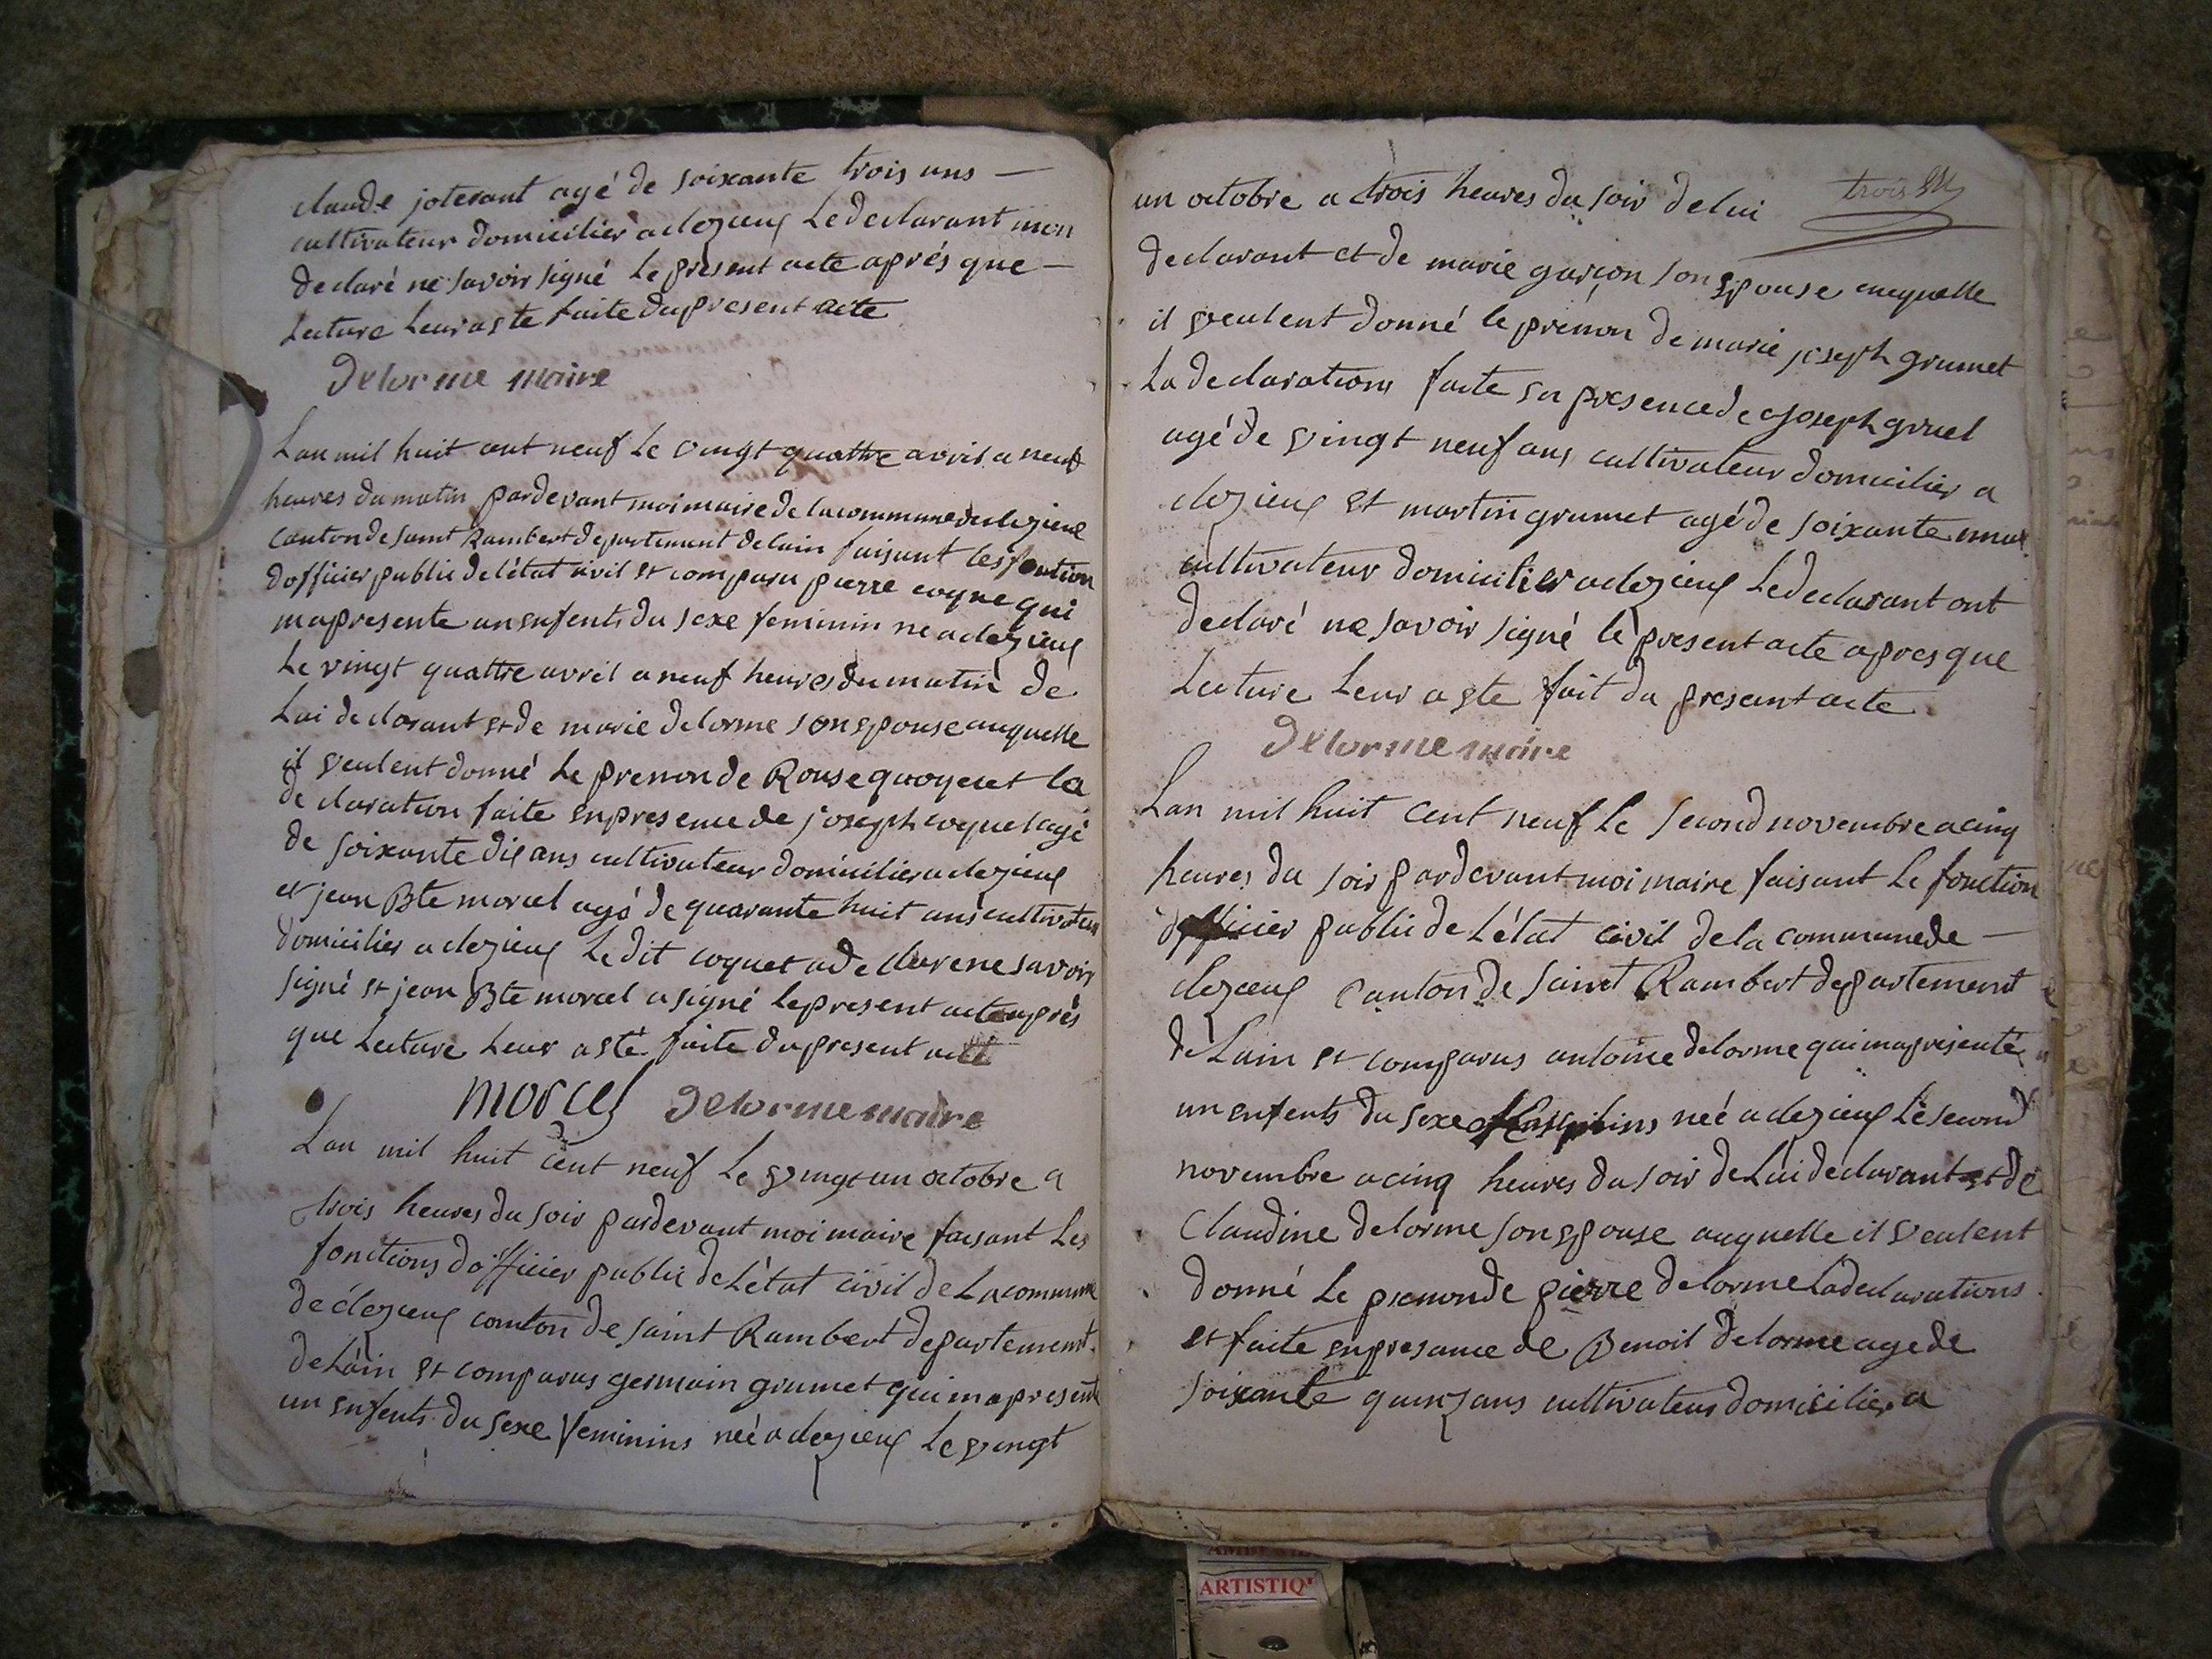 claude joterant agé de soixante trois ans —
cultivateur domicilier a clezieux Le declarant mon
declaré ne savoir signé Le present acte aprés que —
Lecture Leur a ete faite du present acte
Delorme maire
Lan mil huit cent neuf Le vingt quattre avril a neuf
heures du matin pardevant moi maire de la commune de clezieux
Canton de saint Rambert departement de lain faisant les fontion
dofficier public de létat civil et comparu pierre coque qui
ma presente un enfents du sexe feminin ne a clezieux
Le vingt quattre avril a neuf heures du matin de
Lui declarant et de marie delorme son epouse auquelle
il veulent donné Le prenon de Rouse quoquet la
declaration faite en presence de joseph coquet agé
de soixante dix ans cultivateur domicilier a clezieux
et jean Bte morcel agé de quarante huit ans cultivateur
domicilier a clezieux Le dit coquet a declare ne savoir
signé et jean Bte morcel a signé le present acte aprés
que Lecture Leur a eté faite du present acte
morcel Delorme maire
Lan mil huit cent neuf Le vingt un octobre a
trois heures du soir pardevant moi maire faisant Les
fonctions dofficier public de Létat civil de La commune
de clezieux comton de saint Rambert departement
de Lain et comparus germain grumet qui ma presente
un enfents du sexe feminins neé a clezieux Le vingt
trois
un octobre a trois heures du soir de lui
declarant et de marie garçon son epouse auquelle
il veulent donné le prénon de marie joseph grumet
La declarations faite en presence de joseph gruel
agé de vingt neuf ans cultivateur domicilier a
clezieux et martin grumet agé de soixante
cultivateur domicilier a clezieux Le declarant ont
declaré ne savoir signé le present acte apres que
Lecture Leur a ete fait du present acte
Delorme maire
Lan mil huit cent neuf Le second novembre a cinq
heures du soir pardevant moi maire faisant Le fonction
dofficier public de Létat civil de la commune de —
clezieux canton de saint Rambert departement
de Lain et comparus antoine delorme qui ma presenté
un enfents du sexe neé a clezieux Le second
novembre a cinq heures du soir de Lui declarant et de
Claudine delorme son epouse auquelle il veulent
donné Le prenon de pierre delorme La declarations
et faite en presance de Benoit delorme age de
soixante quinz ans cultivateur domicilier a
ARTISTIQ